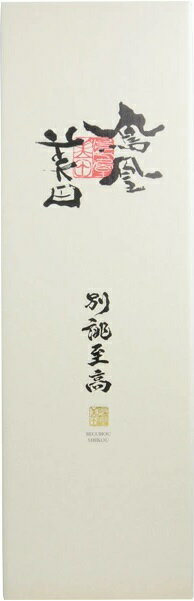 鳳凰
美田
別誂至高
BECCHOU
SHIKOU